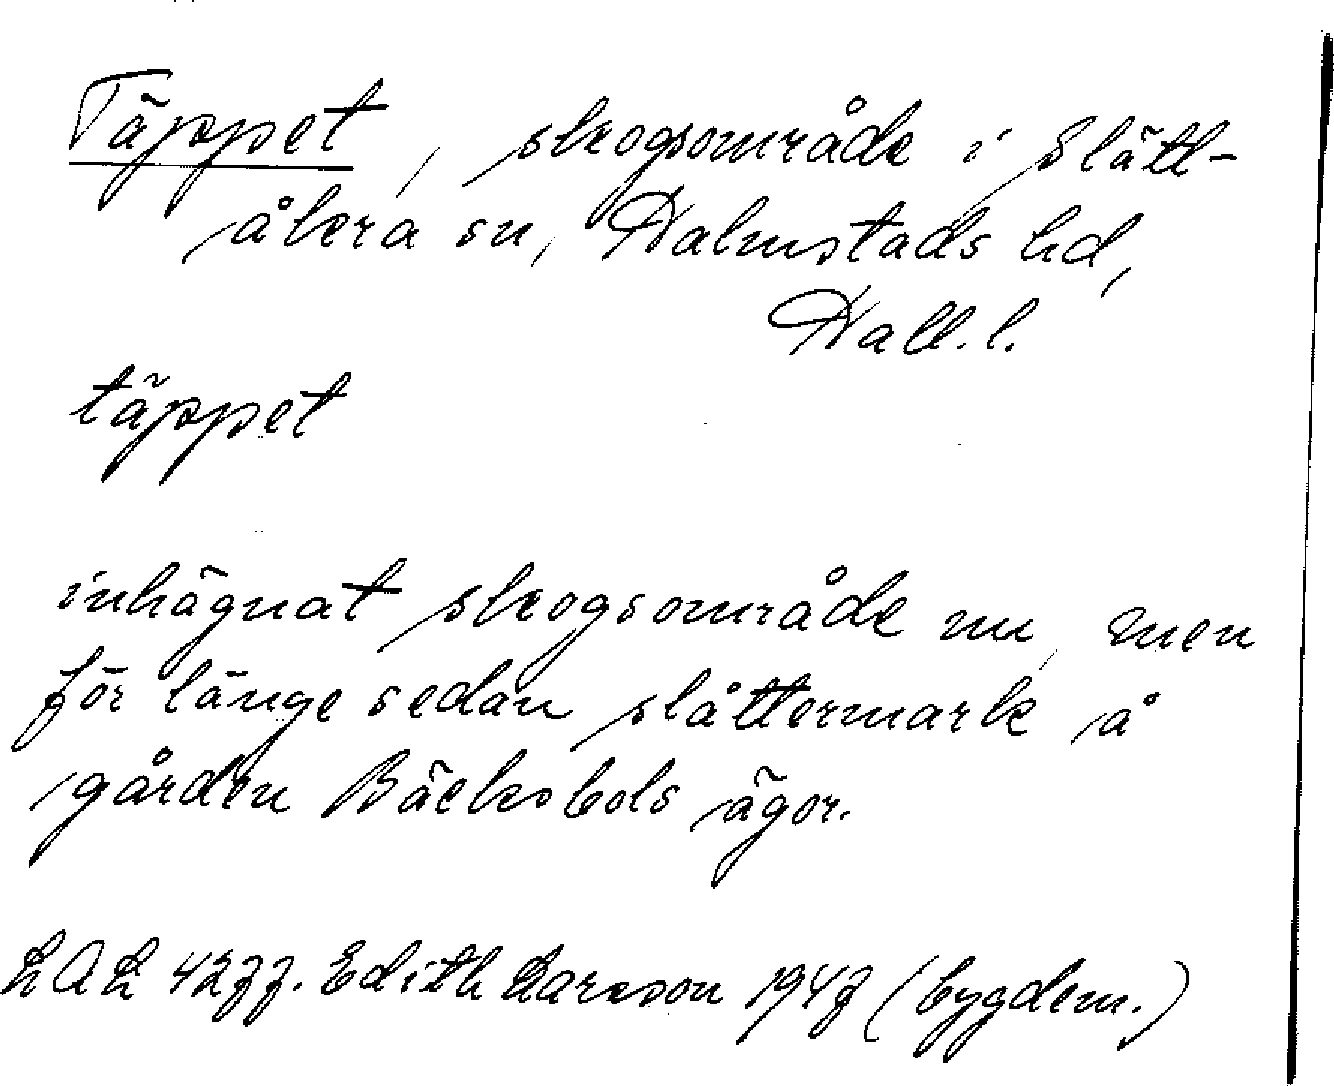 Täppet, skogsområde i Slätt-
åkra sn, Halmstads hd,
Hall. l.
täppet
inhägnat skogsområde nu, men
för länge sedan slåttermark å
gården Bäcksbols ägor.
LAL 4277. Edith Larsson 1947 (bygdem.)